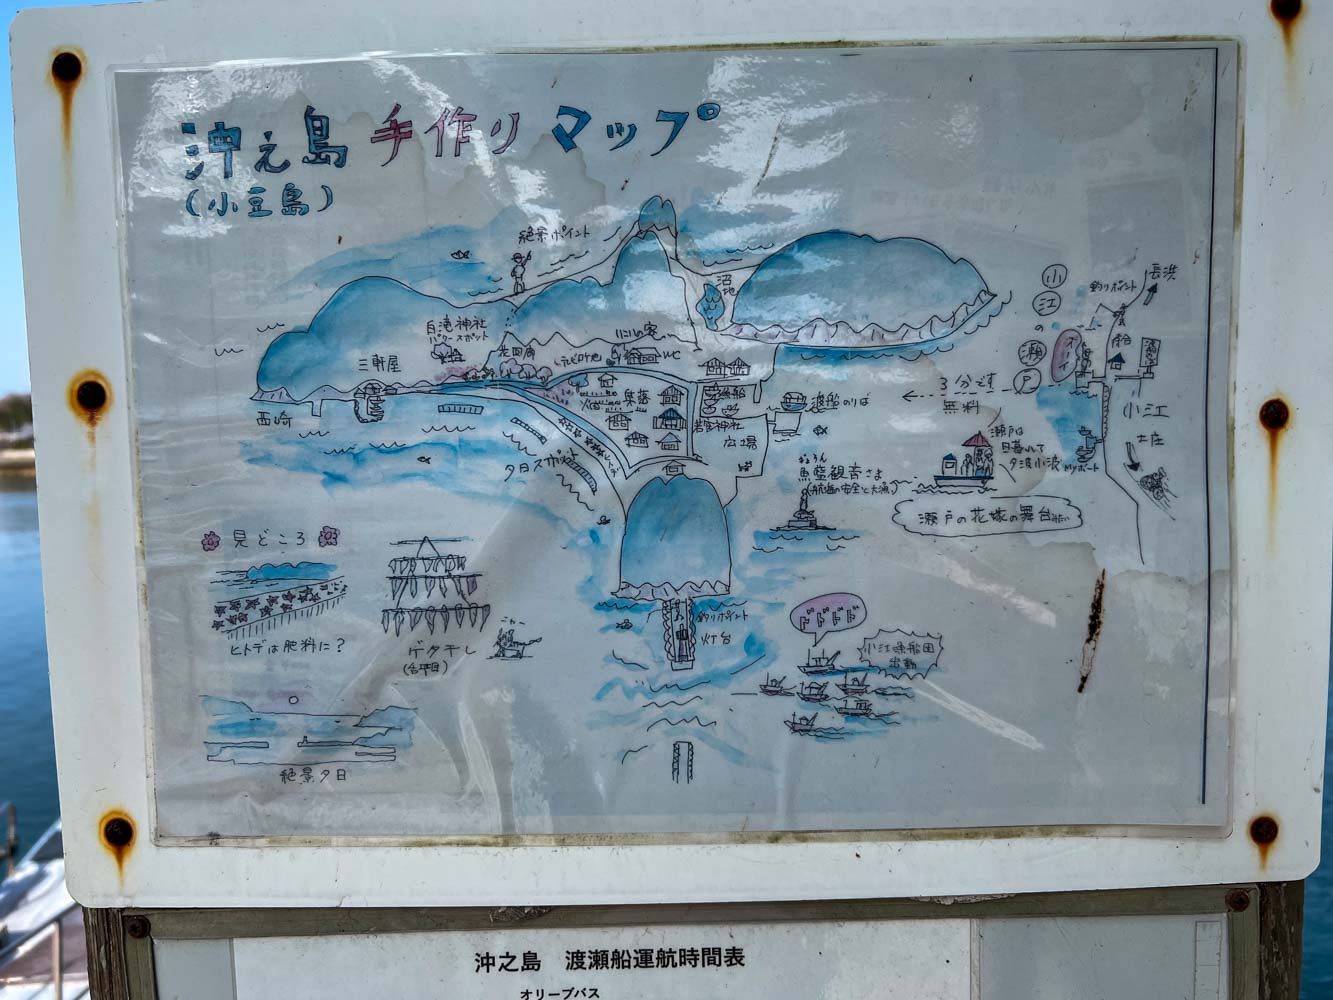 沖之島 手作り マップ
(小豆島)
絶景ポイント
沼地
白滝神社
パワースポット
三軒屋
西崎
WC
集落
夕日スポット
広場
渡船のりば
3分です
無料
小江の瀬戸
オーイ
釣りポイント
長浜
小江
土庄
Myボート
瀬戸は
日暮れて
夕波小波
魚籃観音さま
(航海の安全と大漁)
瀬戸の花嫁の舞台
見どころ
ヒトデは肥料に?
ゲタ干し
絶景夕日
釣りポイント
灯台
ドドドド
小江漁船団
出動
沖之島 渡瀬船運航時間表
オリーブバス